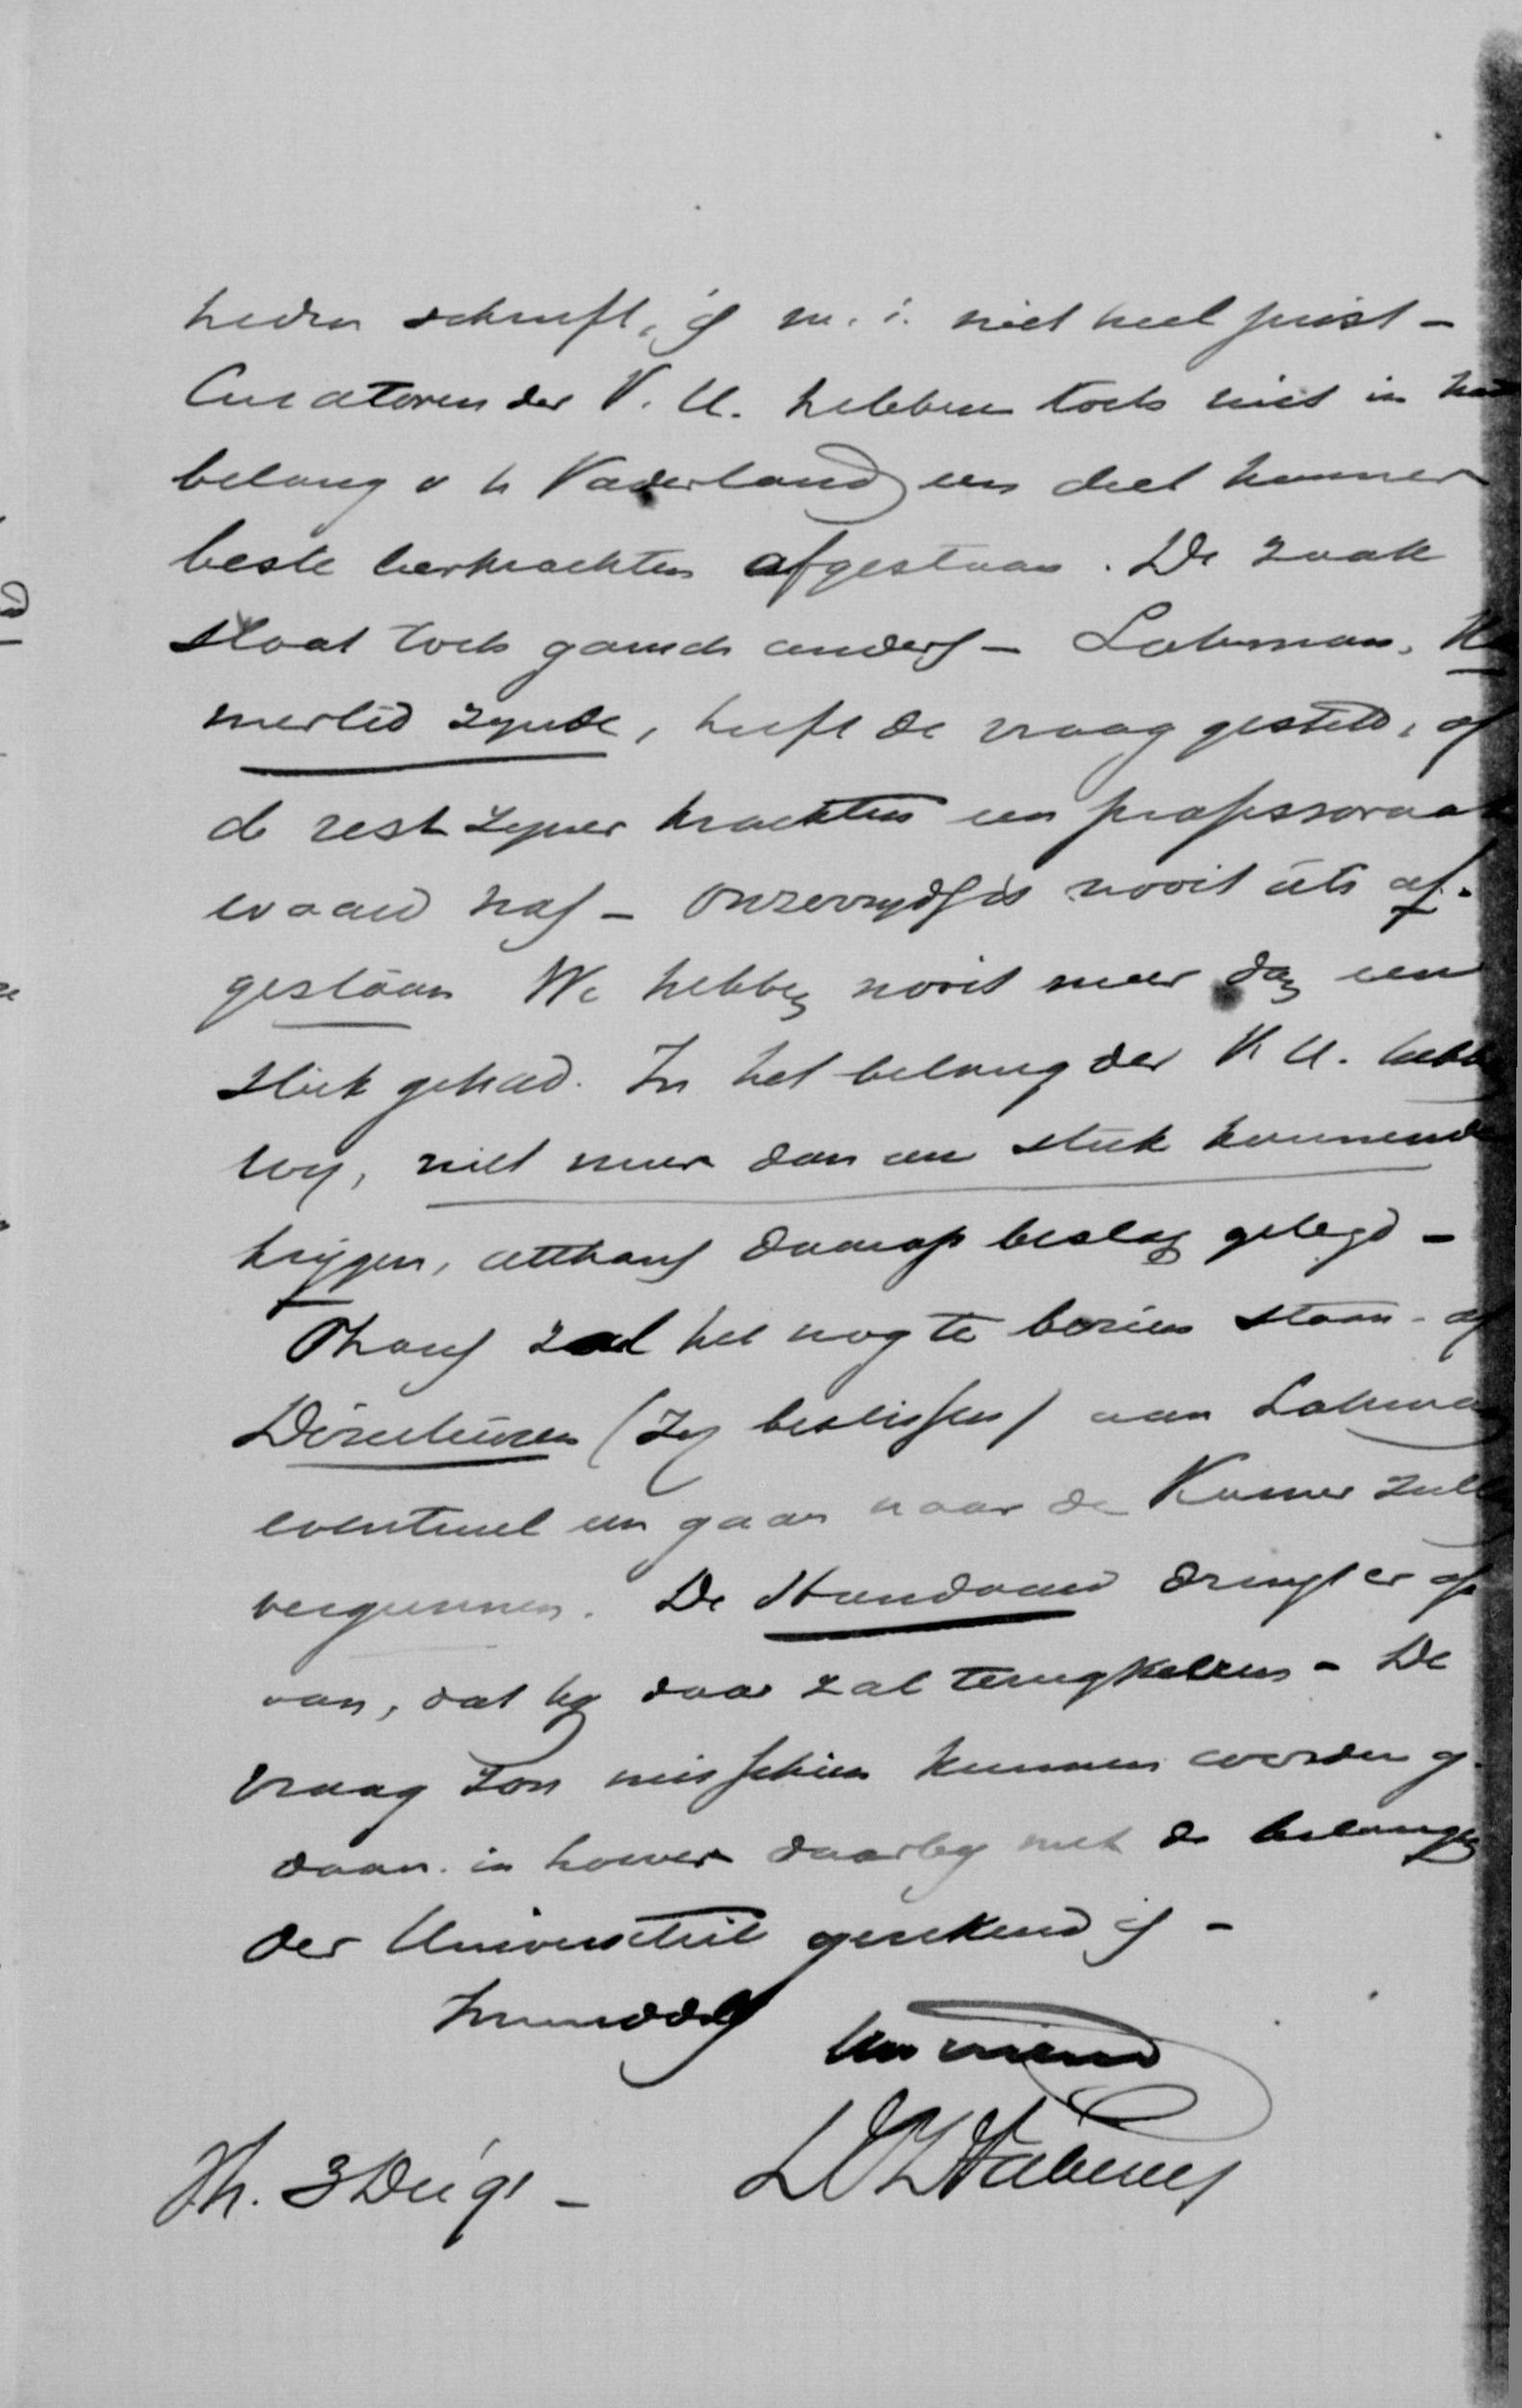 heden schrijft, is m. i. niet heel juist -
Curatoren der V. U. hebben toch niet in het
belang v h Vaderland een deel hunner
beste leerkrachten afgestaan. De zaak
staat toch gansch anders - Lohman, Ka
merlid zynde, heeft de vraag gesteld, of
de rest zyner krachten een professoraat
waard was - Onzerzyds is nooit iets af-
gestaan We hebben nooit meer dan een
stuk gehad. In het belang der V U. hebben
wy, niet meer dan een stuk kunnende
krijgen, althans daarop beslag gelegd -
Thans zal het nog te bezien staan - of
Directeuren (Zy beslissen) aan Lohman
eventueel een gaan naar de Kamer zullen
vergunnen. De Standaard dringt er op
aan, dat hy daar zal terugkeeren - De
vraag zou misschien kunnen worden ge-
daan in hoever daarby met de belangen
der Universiteit gerekend is -
Inmiddels
Uw vriend
Th. 3 Dec 91 -